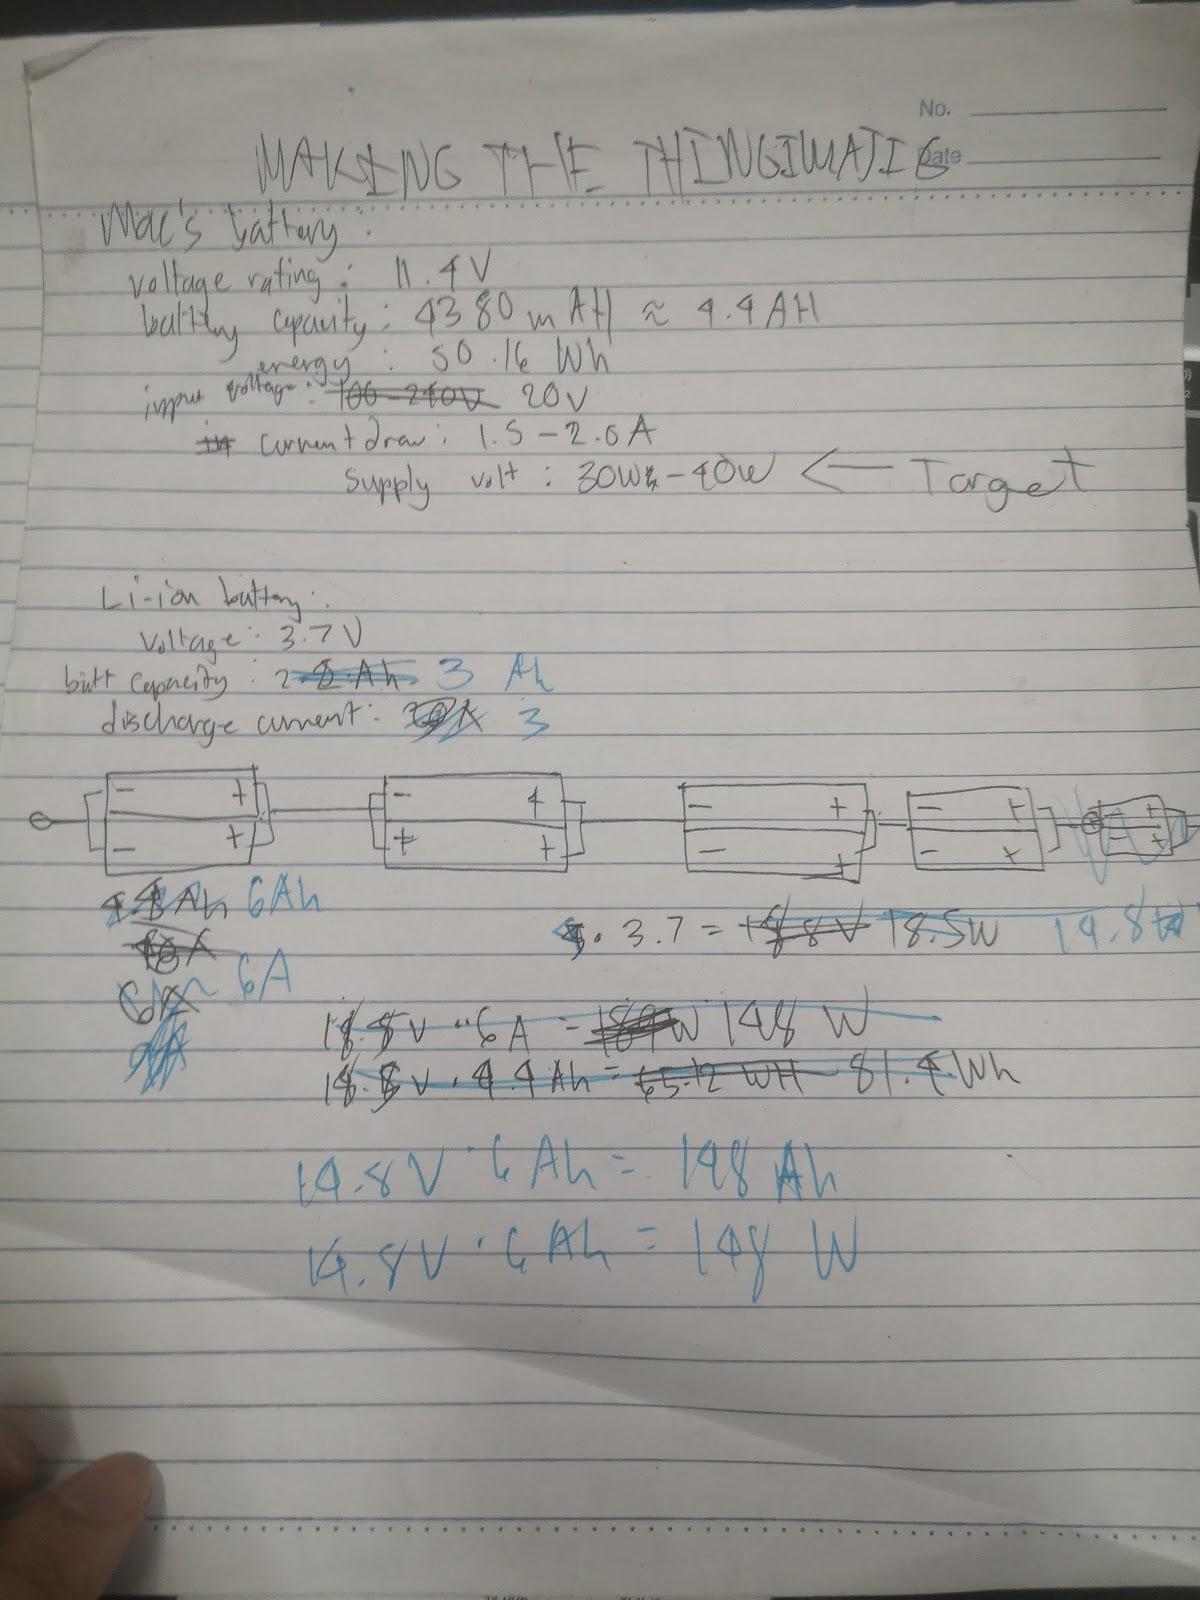 No.
Date
MAKING THE THINGIMAJIG
Mac's battery :
voltage rating : 11.4 V
battery capacity : 4380 mAH ≈ 4.4 AH
energy : 50.16 Wh
input voltage : 100-240V 20V
current draw : 1.5 - 2.0 A
supply volt : 30W - 40W <— Target
Li-ion battery :
Voltage : 3.7 V
batt capacity : 3 Ah
discharge current : 3
- + - + - + - + - +
- + + + - + - + +
Ah 6Ah
. 3.7 = 18.5W 14.8
6A
18.5V · 6A = 148 W
18.5V · 4.4 Ah = 65.12 WH 81.4 Wh
14.8V · 6 Ah = 148 Ah
14.8V · 6 Ah = 148 W